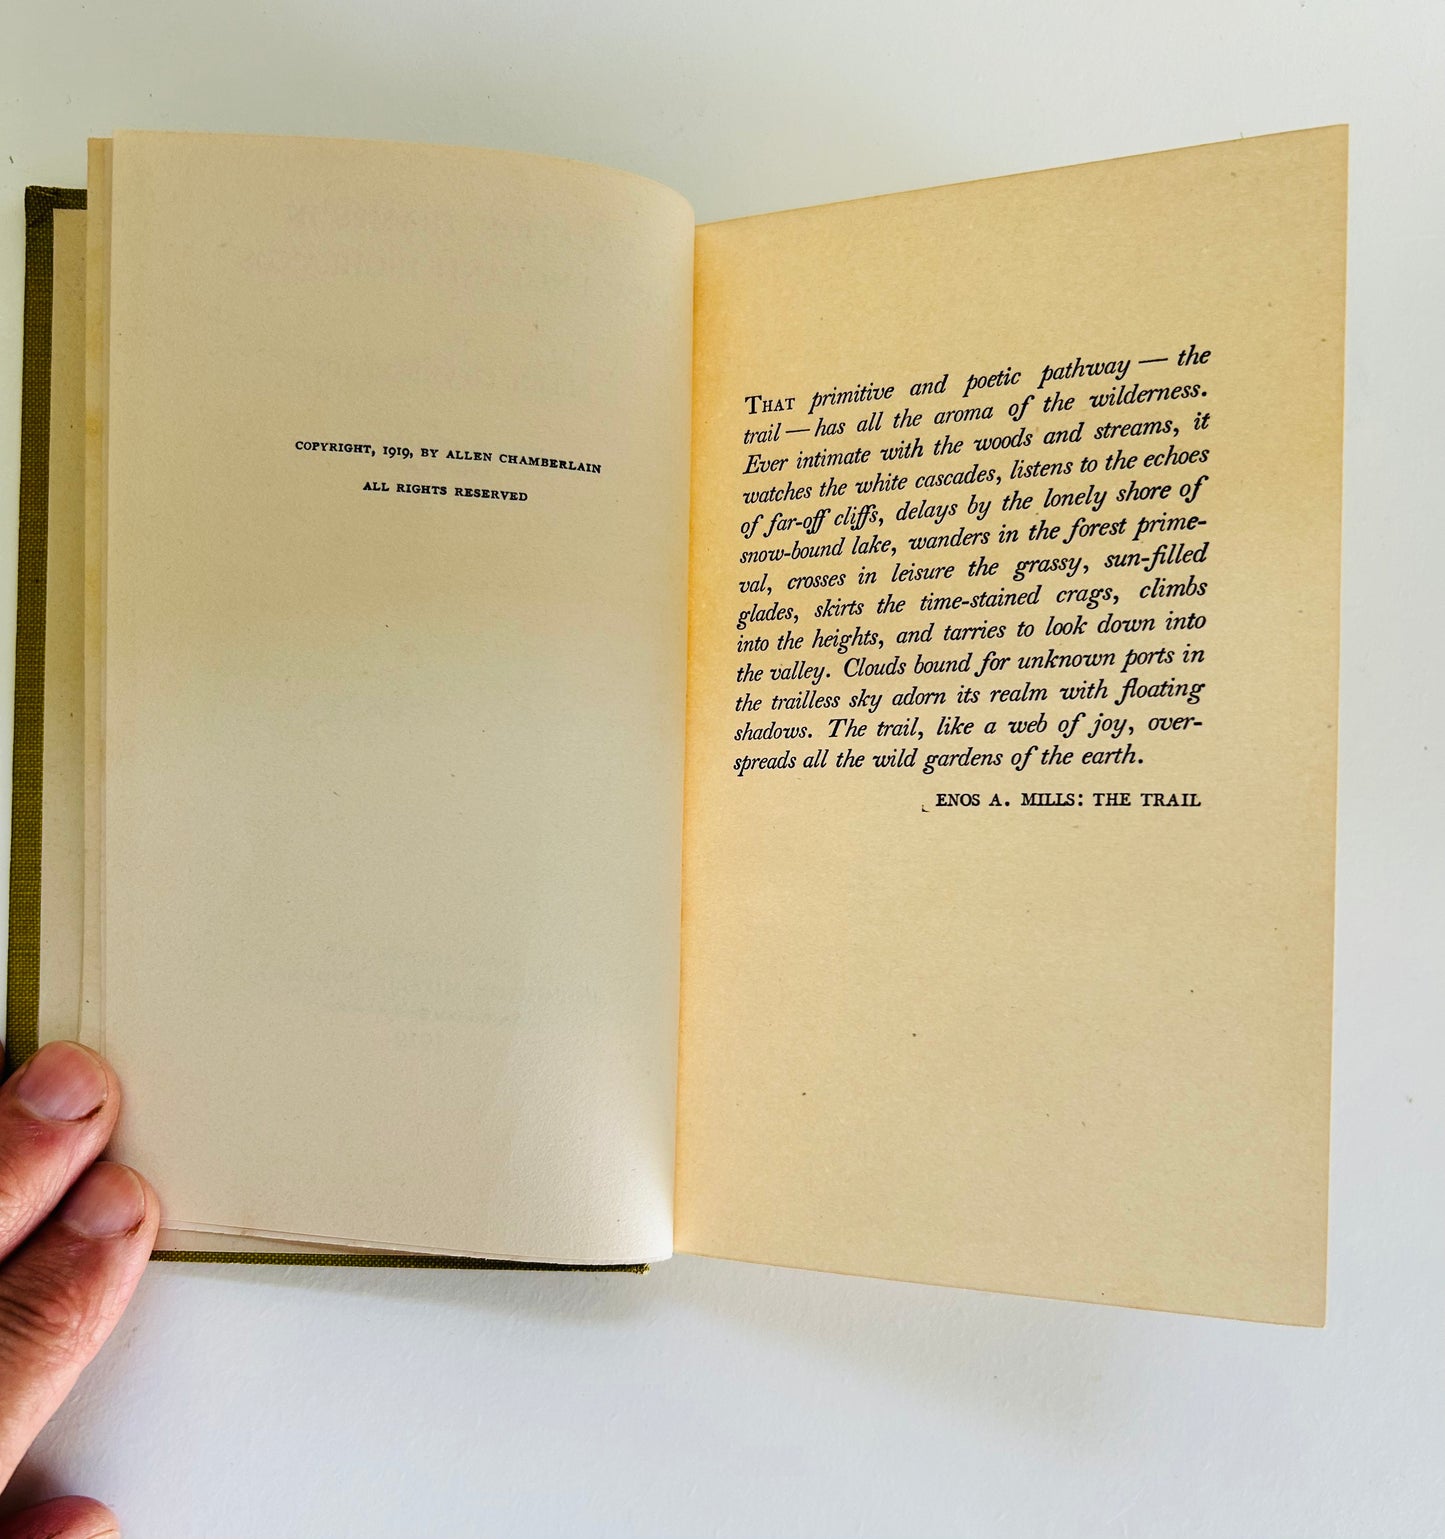 COPYRIGHT, 1919, BY ALLEN CHAMBERLAIN
ALL RIGHTS RESERVED
THAT primitive and poetic pathway — the
trail — has all the aroma of the wilderness.
Ever intimate with the woods and streams, it
watches the white cascades, listens to the echoes
of far-off cliffs, delays by the lonely shore of
snow-bound lake, wanders in the forest prime-
val, crosses in leisure the grassy, sun-filled
glades, skirts the time-stained crags, climbs
into the heights, and tarries to look down into
the valley. Clouds bound for unknown ports in
the trailless sky adorn its realm with floating
shadows. The trail, like a web of joy, over-
spreads all the wild gardens of the earth.
ENOS A. MILLS: THE TRAIL